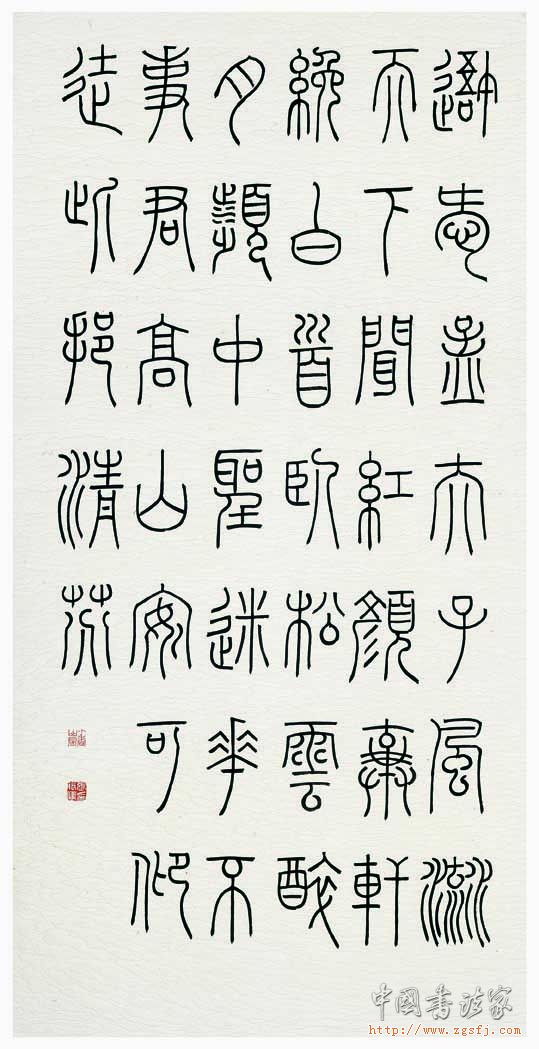 吾愛孟夫子風流
天下聞紅顏棄軒
冕白首臥松雲醉
月頻中聖迷花不
事君高山安可仰
徒此揖清芬
中國書法家
http://www.zgsfj.com